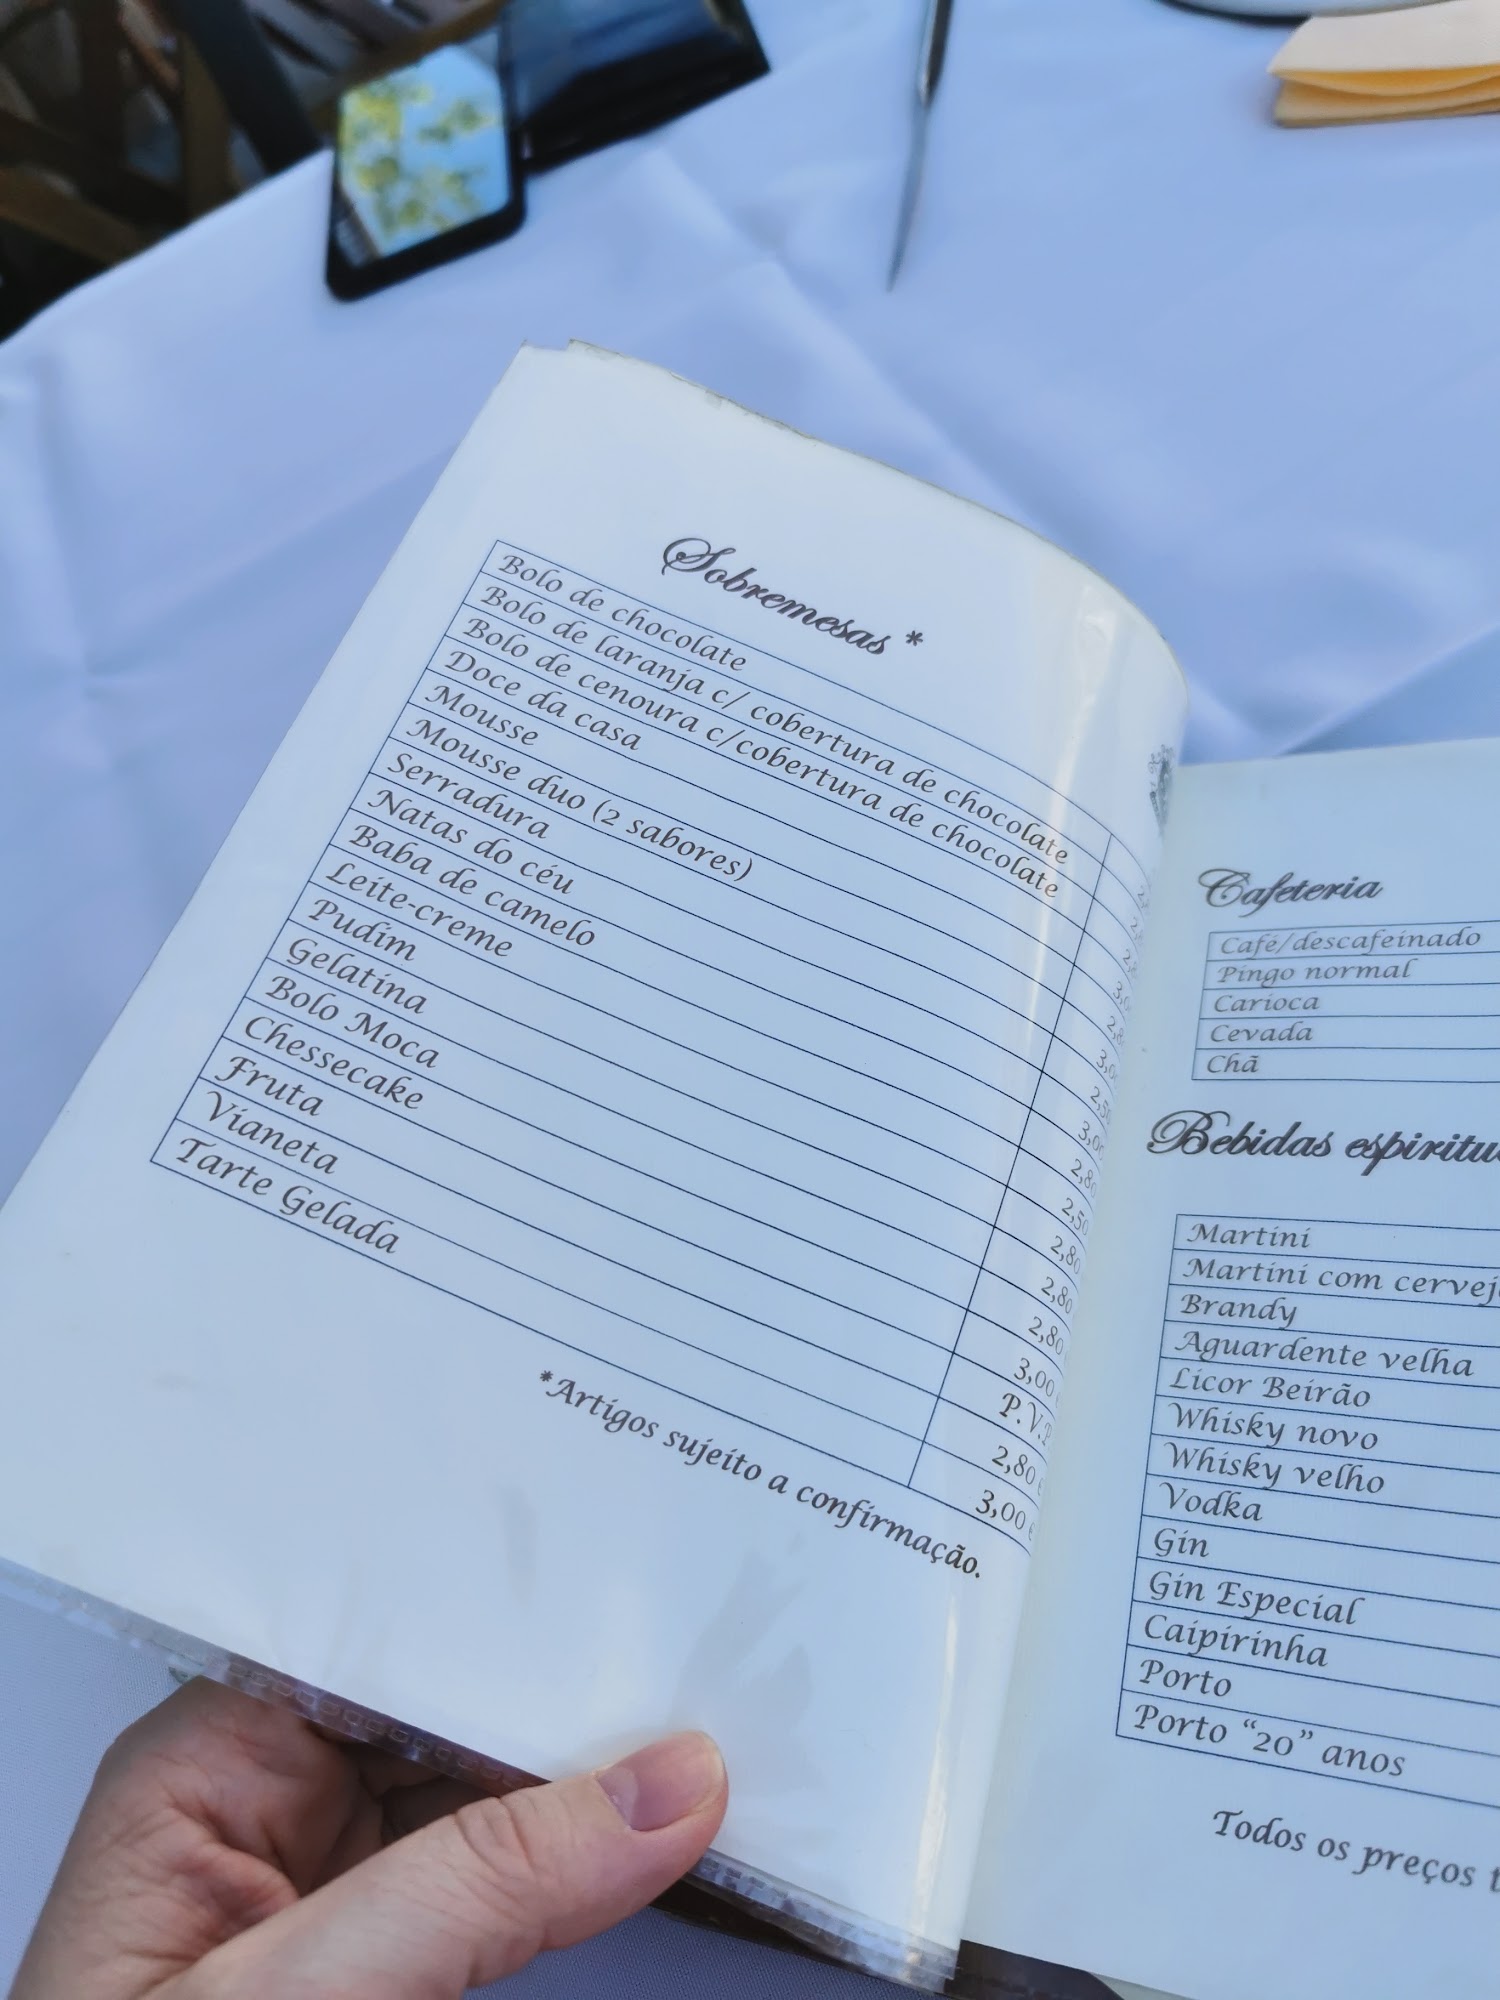 Sobremesas *
Bolo de chocolate
Bolo de laranja c/ cobertura de chocolate
Bolo de cenoura c/cobertura de chocolate
Doce da casa
Mousse
Mousse duo (2 sabores)
Serradura 2,50
Natas do céu 3,00
Baba de camelo 2,80
Leite-creme 2,50
Pudim 2,80
Gelatina 2,80
Bolo Moca 2,80
Chessecake 3,00
Fruta P.V.P
Vianeta 2,80 €
Tarte Gelada 3,00 €
*Artigos sujeito a confirmação.
Cafeteria
Café/descafeinado
Pingo normal
Carioca
Cevada
Chã
Bebidas
Martini
Martini com
Brandy
Aguardente velha
Licor Beirão
Whisky novo
Whisky velho
Vodka
Gin
Gin Especial
Caipirinha
Porto
Porto "20" anos
Todos os preços